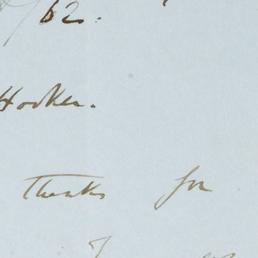 62.
Hooker.
Thanks for